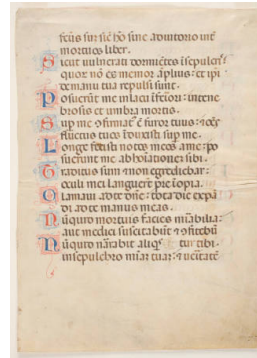 fctus sum sic ho sine adiutorio int
mortuos liber.
Sicut uulnerati dormietes i sepulcris
quor no es memor aplius: et ipi
de manu tua repulsi sunt.
Posuerut me i lacu iferiori: in tene
brosis et umbra mortis.
Sup me ofirmat e furor tuus: et oes
fluctus tuos iduxisti sup me.
Longe fecisti notos meos a me: po
suerunt me abhoiatione sibi.
Traditus sum et non egrediebar:
oculi mei languerut pre iopia.
Clamaui ad te dne: tota die expa
di ad te manus meas.
Nuquid mortuis facies mirabilia:
aut medici suscitabut et ofitebut
Nuquid narrabit aliqs tur tibi.
in sepulcro miam tuam: et ueritate